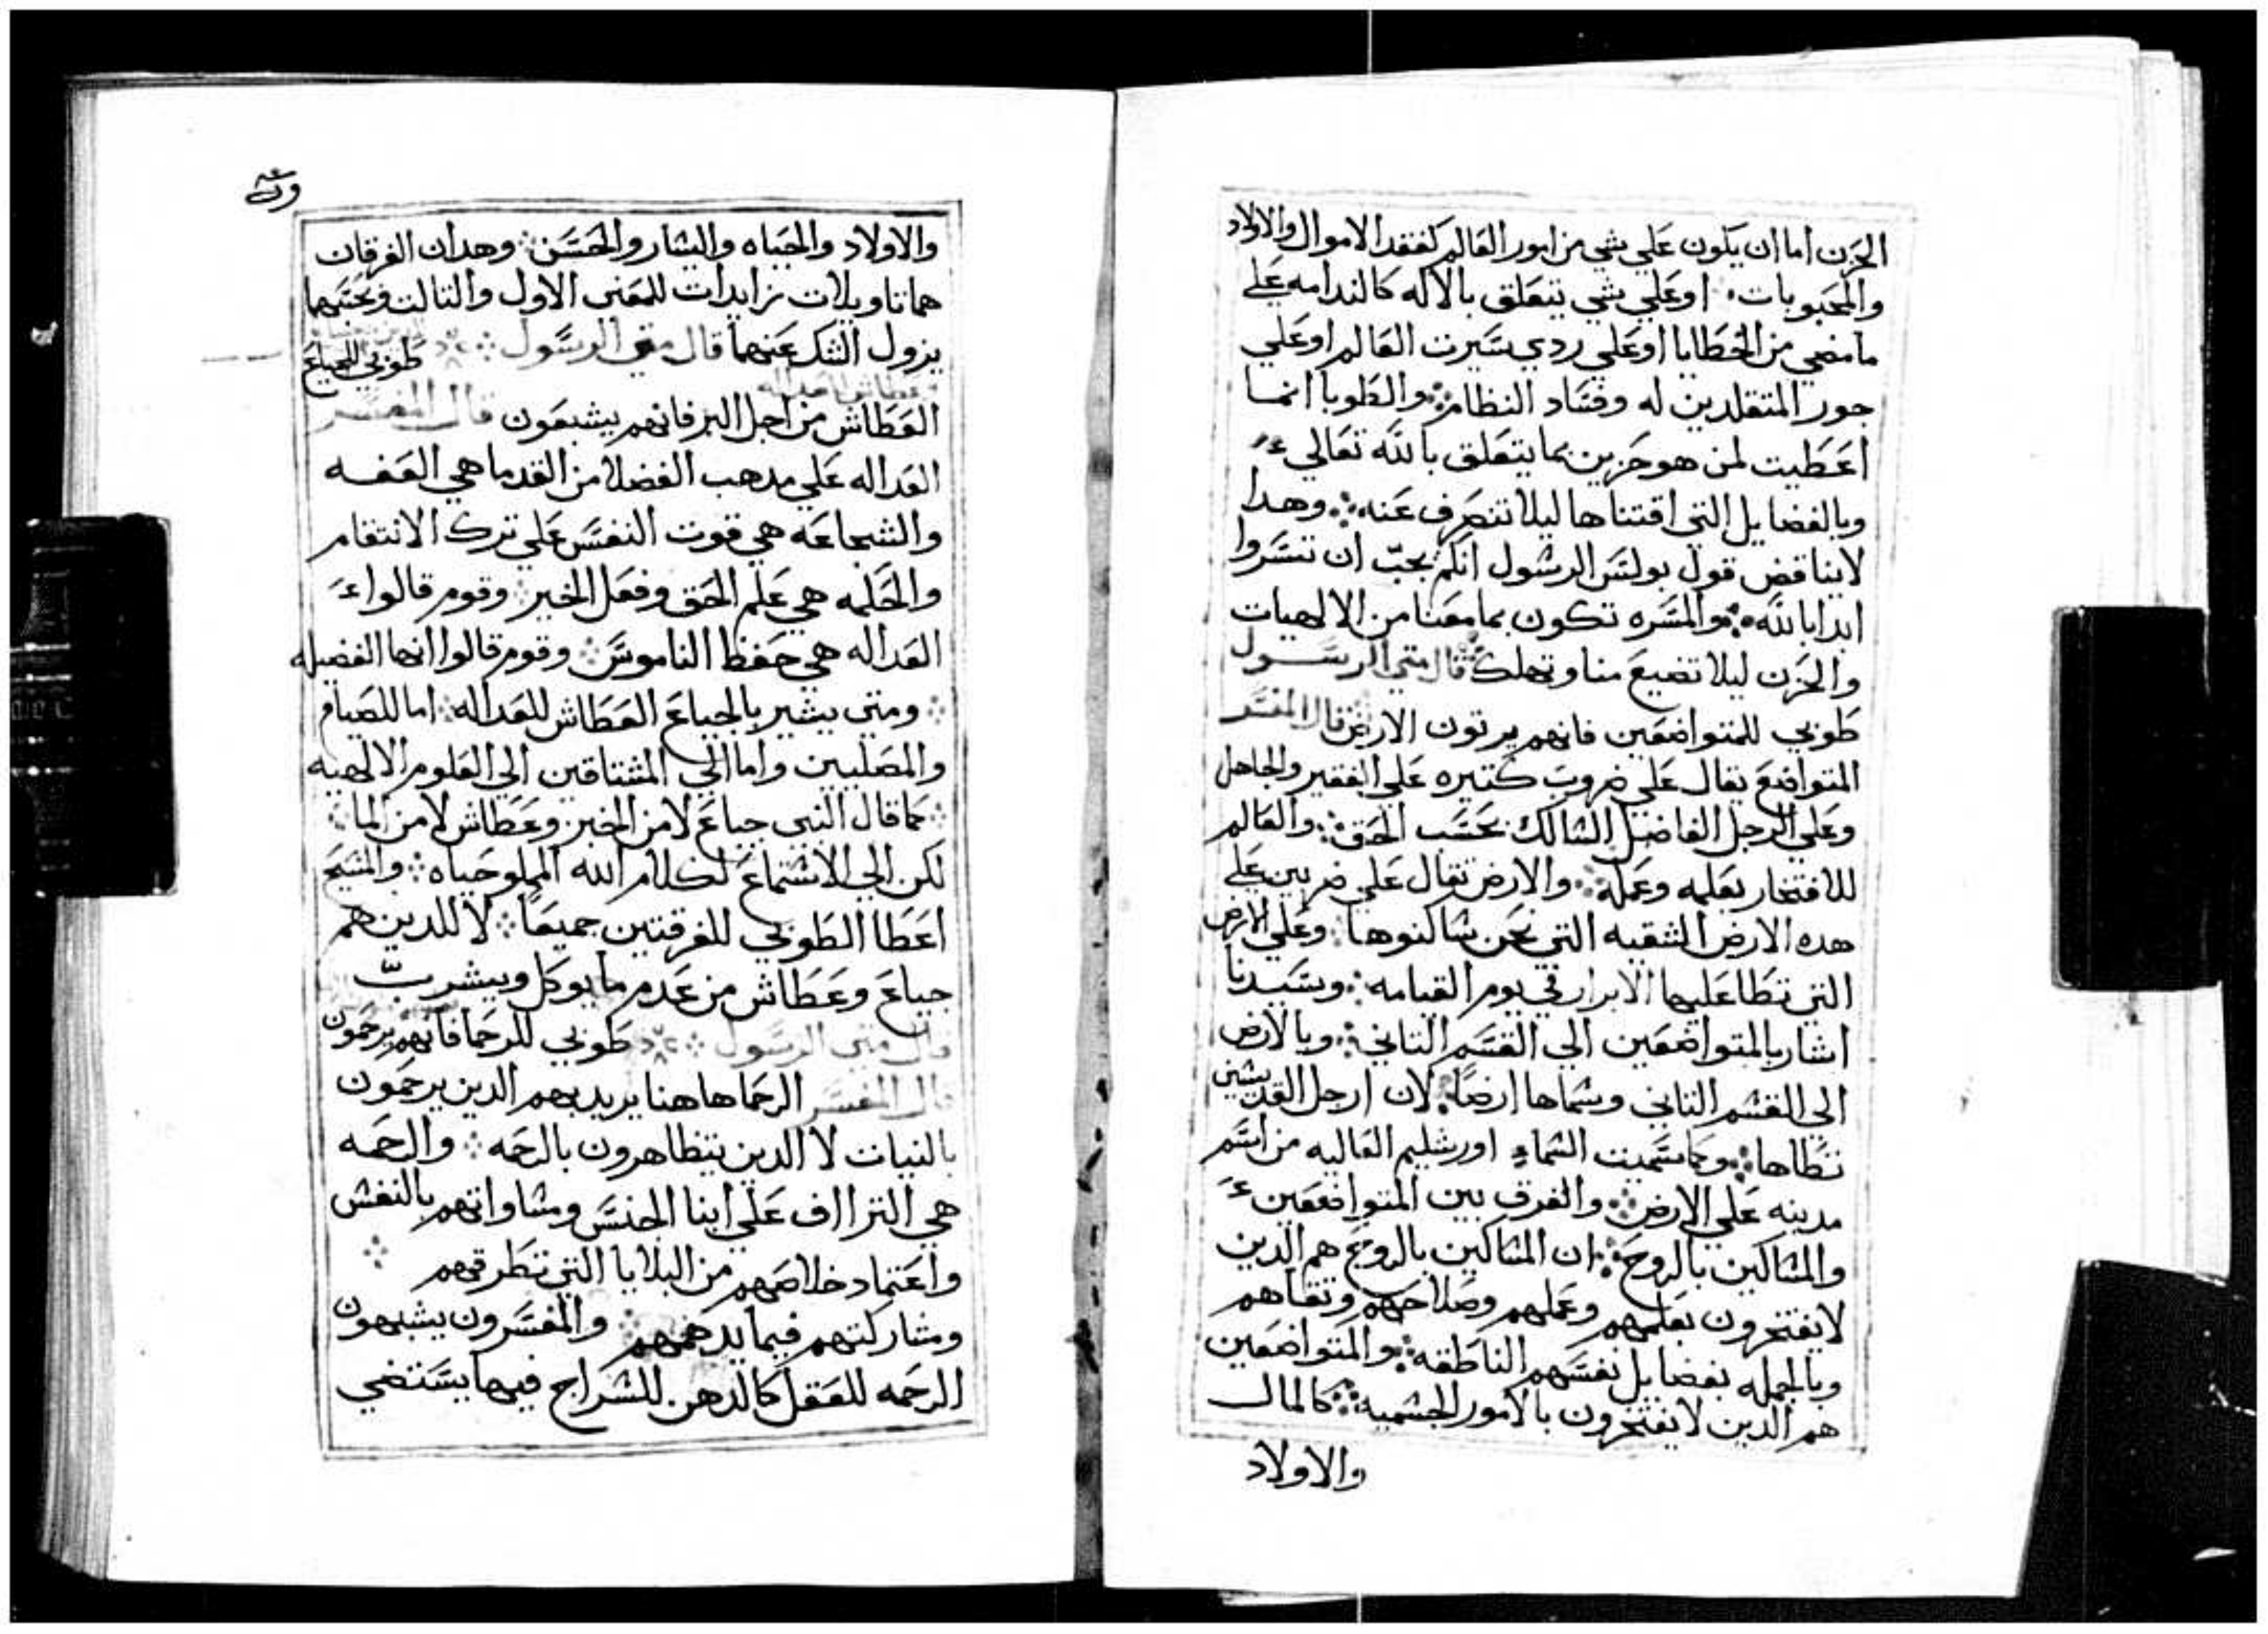 الحزن اما ان يكون علي شي من امور العالم كفقد الاموال والاولاد
والمحبوبات ⁘ او علي شي يتعلق بالاله كالندامه علي
ما مضي من الخطايا او علي ردي سيرت العالم او علي
جور المتقلدين له وفساد النظام ⁘ والطوبا انما
اعطيت لمن هو حزين بما يتعلق بالله تعالي
وبالفضايل التي اقتناها ليلا تنصرف عنه ⁘ وهدا
لا يناقض قول بولس الرسول انكم يجب ان تسروا
ابدا بالله ⁘ والمسره تكون بما معنا من الالهيات
والحزن ليلا تضيع منا وتهلك قال متي الرسول
طوبي للمتواضعين فانهم يرتون الارض قال المفسر
المتواضع يقال علي ضروب كتيره علي الفقير والجاهل
وعلي الرجل الفاضل السالك بحسب الحق ⁘ والعالم
للافتخار بعلمه وعمله ⁘ والارض تقال علي ضربين علي
هده الارض الشقيه التي نحن ساكنوها ⁘ وعلي الارض
التي تطا عليها الابرار في يوم القيامه ⁘ وسيدنا
اشار بالمتواضعين الي القسم التاني ⁘ وبالارض
الي القسم التاني وسماها ارضًا ⁘ لان ارجل القديسين
تطاها ⁘ وكما سميت السماء اورشليم العاليه من اسم
مدينه علي الارض ⁘ والفرق بين المتواضعين
والمساكين بالروح ⁘ ان المساكين بالروح هم الدين
لا يفتخرون بعلمهم وعملهم وصلاحهم وتقاهم
وبالجمله بفضايل نفسهم الناطقه ⁘ والمتواضعين
هم الدين لا يفتخرون بالامور الجسميه ⁘ كالمال
والاولاد
والاولاد والحياه واليسار والحسن ⁘ وهدان الفرقان
هما تاويلات زايدات للمعني الاول والتالت وبحسبهما
يزول الشك عنهما قال متي الرسول ⁘ طوبي للجياع
العطاش من اجل البر فانهم يشبعون قال المفسر
العداله علي مدهب الفضلا من القدما هي العفه
والشجاعه هي قوت النفس علي ترك الانتقام
والحكمه هي علم الحق وفعل الخير ⁘ وقوم قالوا
العداله هي حفظ الناموس ⁘ وقوم قالوا انها الفضيله
⁘ ومتي يشير بالجياع العطاش للعداله ⁘ اما للصيام
والمصليين واما الي المشتاقين الي العلوم الالهيه
⁘ كما قال النبي جياع لا من الخبز وعطاش لا من الما ⁘
لكن الي الاستماع لكلام الله المملو حياه ⁘ والمسيح
اعطا الطوبي للفرقتين جميعًا ⁘ لا للدين هم
جياع وعطاش من عدم ما يوكل ويشرب
قال متي الرسول ⁘ طوبي للرحما فانهم يرحمون
قال المفسر الرحما هاهنا يريد بهم الدين يرحمون
بالنيات لا الدين يتظاهرون بالرحمه ⁘ والرحمه
هي التراوف علي ابنا الجنس ومساواتهم بالنفس
واعتماد خلاصهم من البلايا التي تطرقهم ⁘
ومشاركتهم فيما يدهمهم ⁘ والمفسرون يشبهون
الرحمه للعقل كالدهن للسراج فيها يستضي